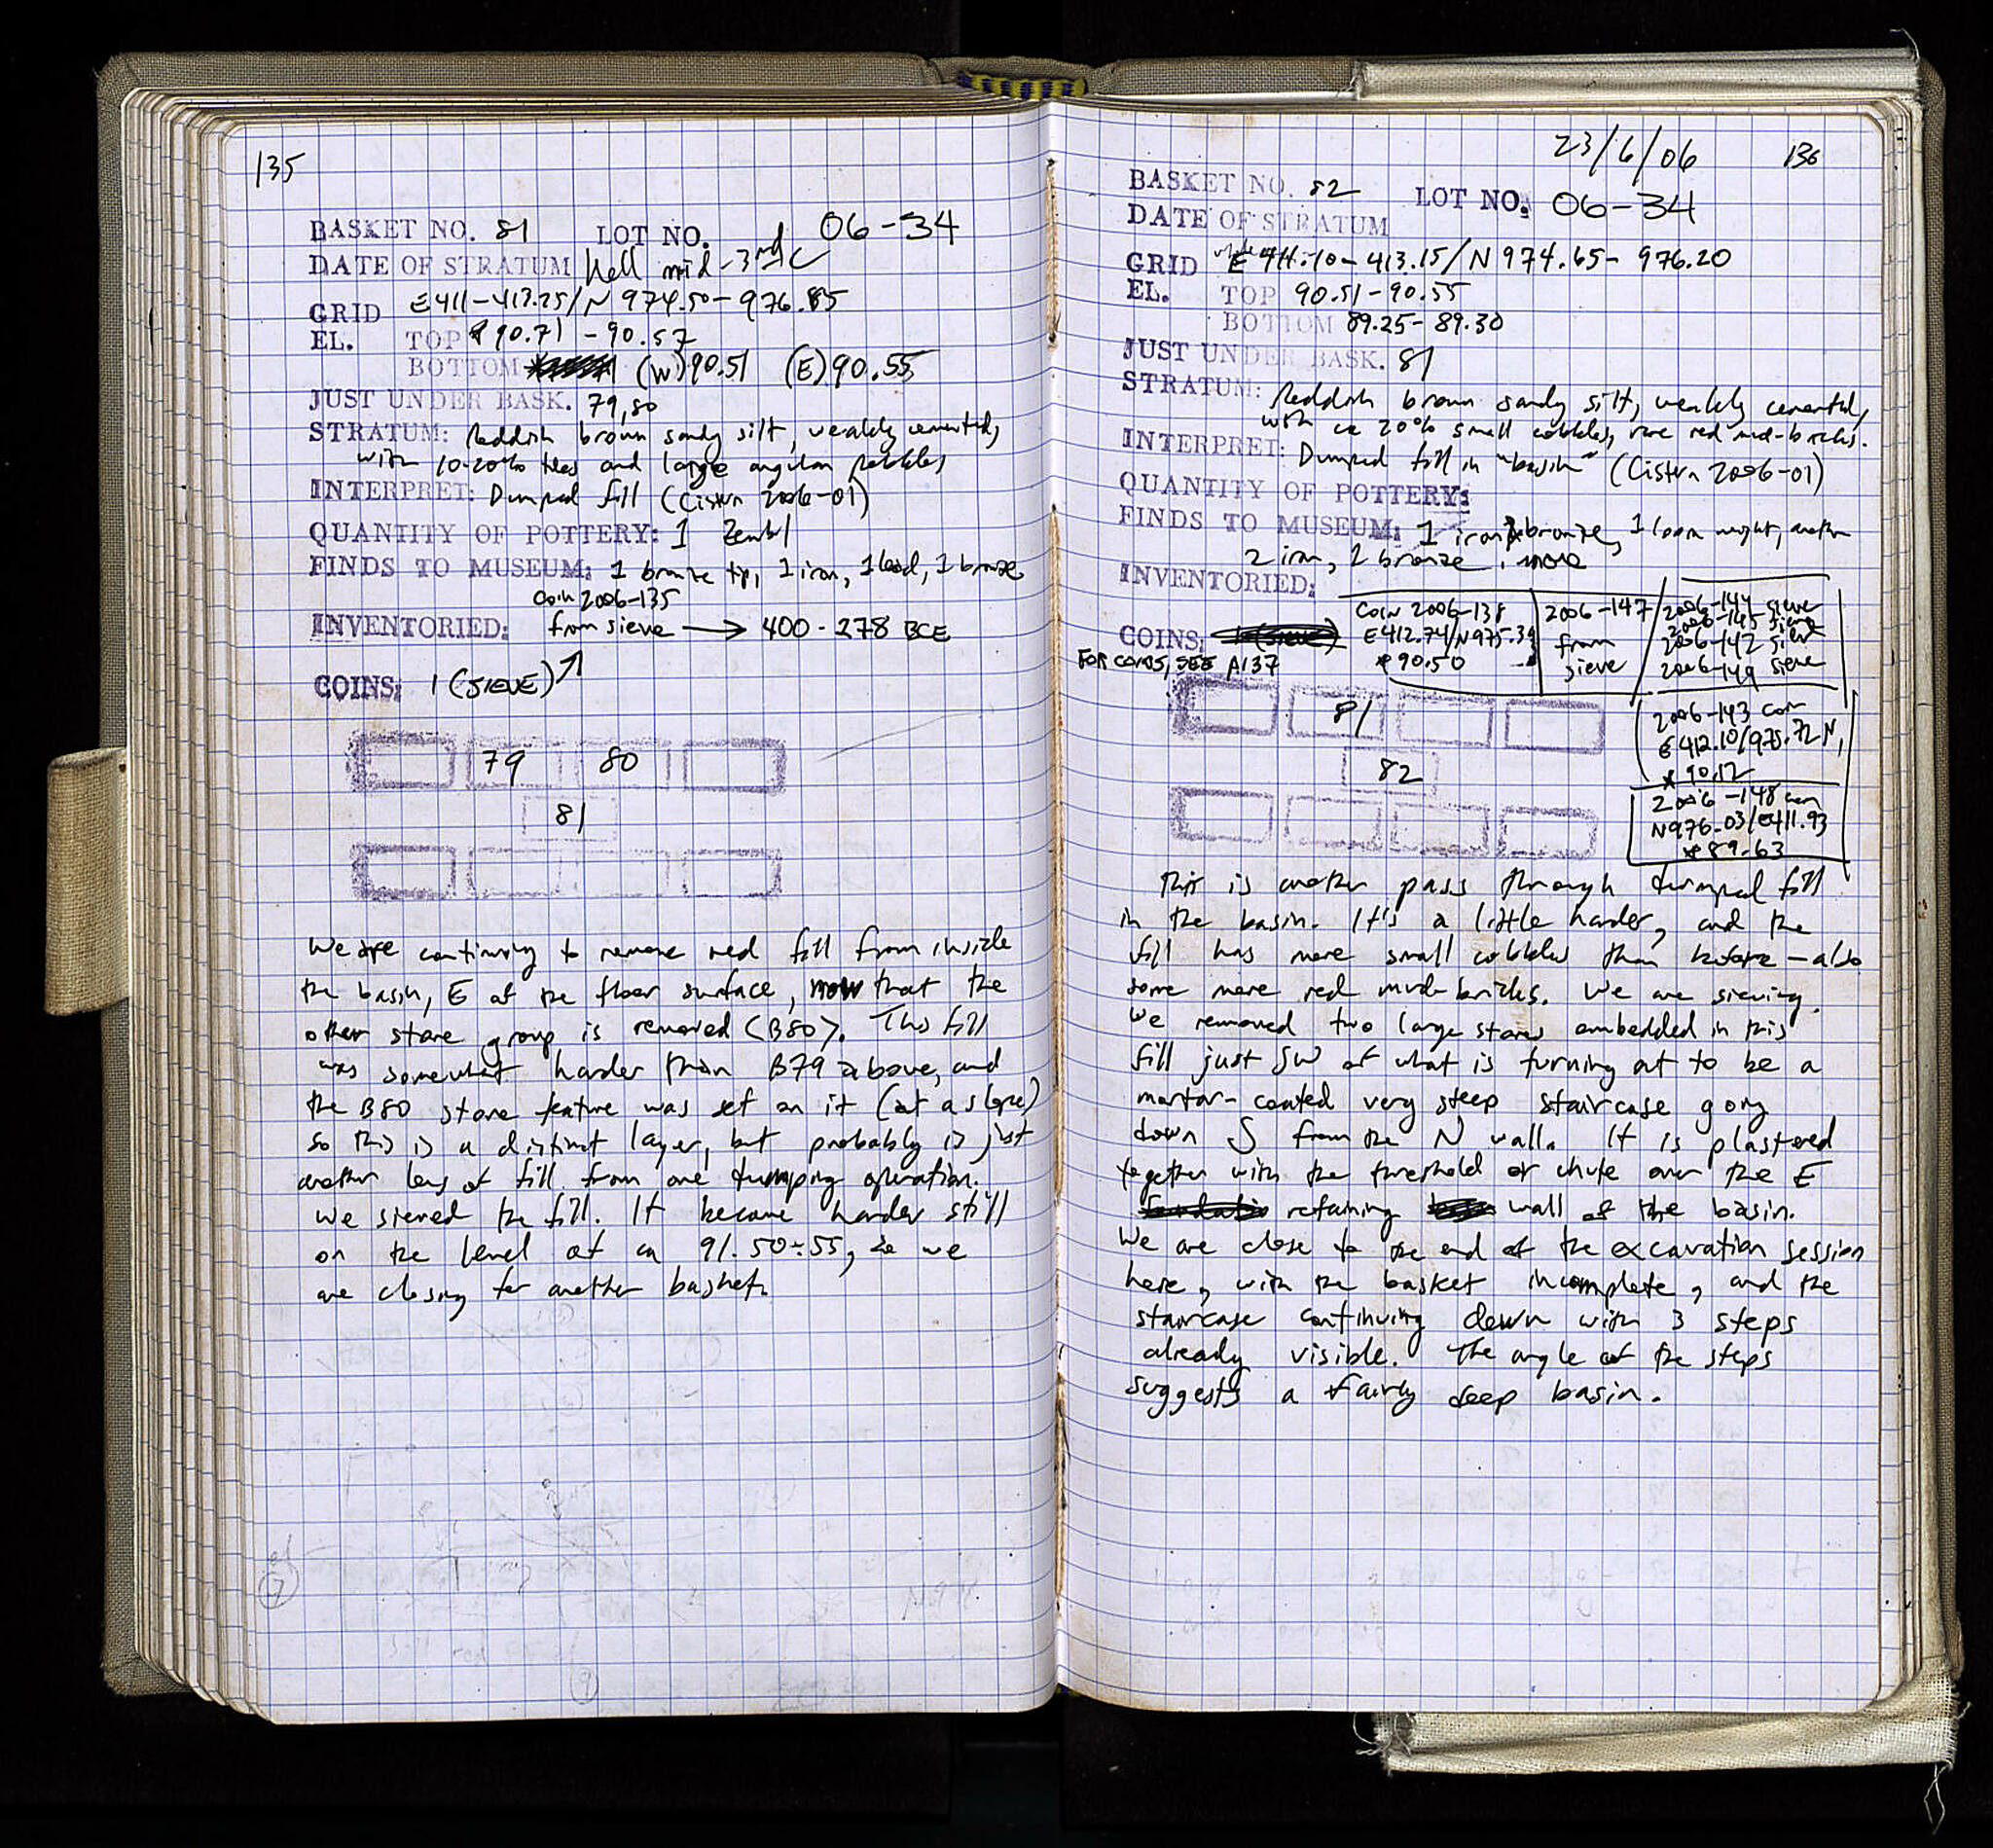 135
BASKET NO. 81 LOT NO. 06-34
DATE OF STRATUM Hell mid-3rd C
GRID E411-413.25/N 974.50-976.85
EL. TOP 90.71-90.57
BOTTOM (W)90.51 (E)90.55
JUST UNDER BASK. 79,80
STRATUM: Reddish brown sandy silt, weakly cemented,
with 10-20% tiles and large angular pebbles
INTERPRET: Dumped fill (Cistern 2006-01)
QUANTITY OF POTTERY: 1 Zembil
FINDS TO MUSEUM: 1 bronze tip, 1 iron, 1 lead, 1 bronze
coin 2006-135
INVENTORIED: from sieve → 400-278 BCE
COINS: 1 (SIEVE)
79 80
81
We are continuing to remove red fill from inside
the basin, E of the floor surface, now that the
other stone group is removed (B80). This fill
was somewhat harder than B79 above, and
the B80 stone feature was set on it (at a slope)
so this is a distinct layer, but probably is just
another lens of fill from one dumping operation.
We sieved the fill. It became harder still
on the level of ca 91.50-.55, so we
are closing for another basket.
23/6/06 136
BASKET NO. 82 LOT NO. 06-34
DATE OF STRATUM
GRID E 411.10-413.15/N 974.65-976.20
EL. TOP 90.51-90.55
BOTTOM 89.25-89.30
JUST UNDER BASK. 81
STRATUM: Reddish brown sandy silt, weakly cemented,
with ca 20% small cobbles, rare red mud-bricks.
INTERPRET: Dumped fill in "basin" (Cistern 2006-01)
QUANTITY OF POTTERY:
FINDS TO MUSEUM: 1 iron, bronze, 1 loom weight, another
2 iron, 2 bronze, more
INVENTORIED:
COINS:
FOR COINS, SEE P137
COIN 2006-138
E412.74/N975.39
90.50
2006-147
from
sieve
2006-144 sieve
2006-145 sieve
2006-142 sieve
2006-149 sieve
2006-143 coin
E412.10/975.72 N,
90.12
2006-148 coin
N976.03/E411.93
89.63
81
82
This is another pass through dumped fill
in the basin. It's a little harder, and the
fill has more small cobbles than before - also
some more red mud-bricks. We are sieving.
We removed two large stones embedded in this
fill just SW of what is turning out to be a
mortar-coated very steep staircase going
down S from the N wall. It is plastered
together with the threshold or chute over the E
retaining wall of the basin.
We are close to the end of the excavation session
here, with the basket incomplete, and the
staircase continuing down with 3 steps
already visible. The angle of the steps
suggests a fairly deep basin.